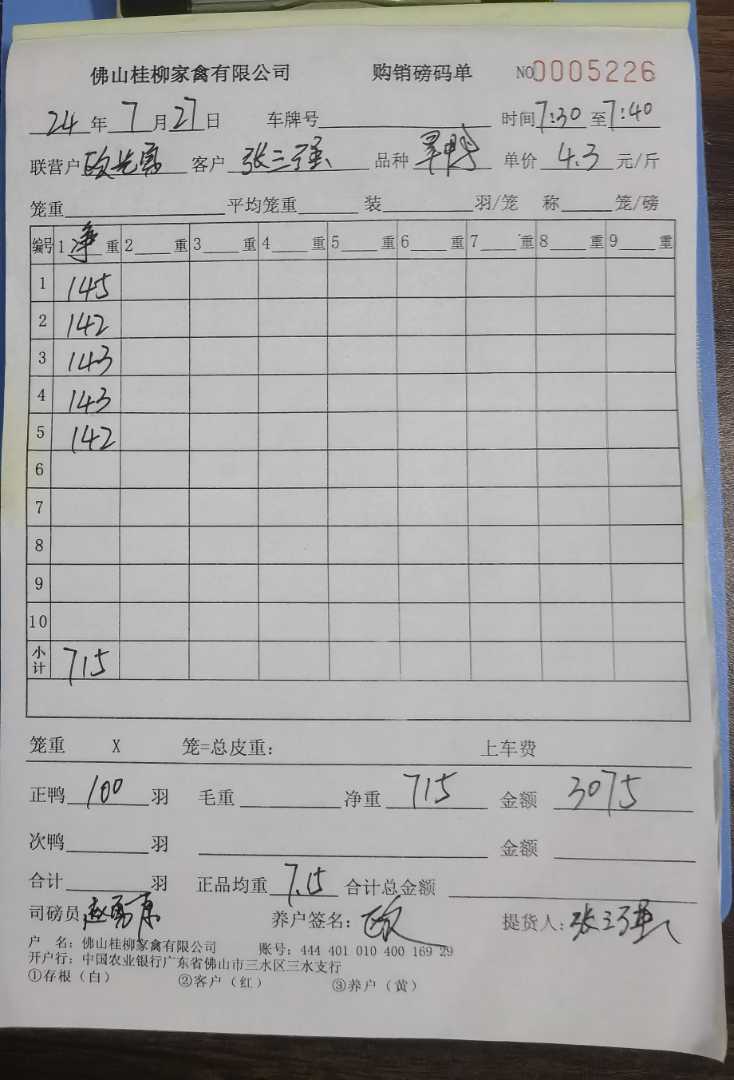 佛山桂柳家禽有限公司 购销磅码单 NO0005226
24年7月27日 车牌号 时间7:30至7:40
联营户 客户 张三强 品种 单价 4.3 元/斤
笼重 平均笼重 装 羽/笼 称 笼/磅
编号 1净重 2 重 3 重 4 重 5 重 6 重 7 重 8 重 9 重
1 145
2 142
3 143
4 143
5 142
6
7
8
9
10
小计 715
笼重 X 笼=总皮重: 上车费
正鸭 100 羽 毛重 净重 715 金额 3075
次鸭 羽 金额
合计 羽 正品均重 7.15 合计总金额
司磅员 养户签名: 欧 提货人: 张三强
户 名: 佛山桂柳家禽有限公司 账号: 444 401 010 400 169 29
开户行: 中国农业银行广东省佛山市三水区三水支行
①存根(白) ②客户(红) ③养户(黄)